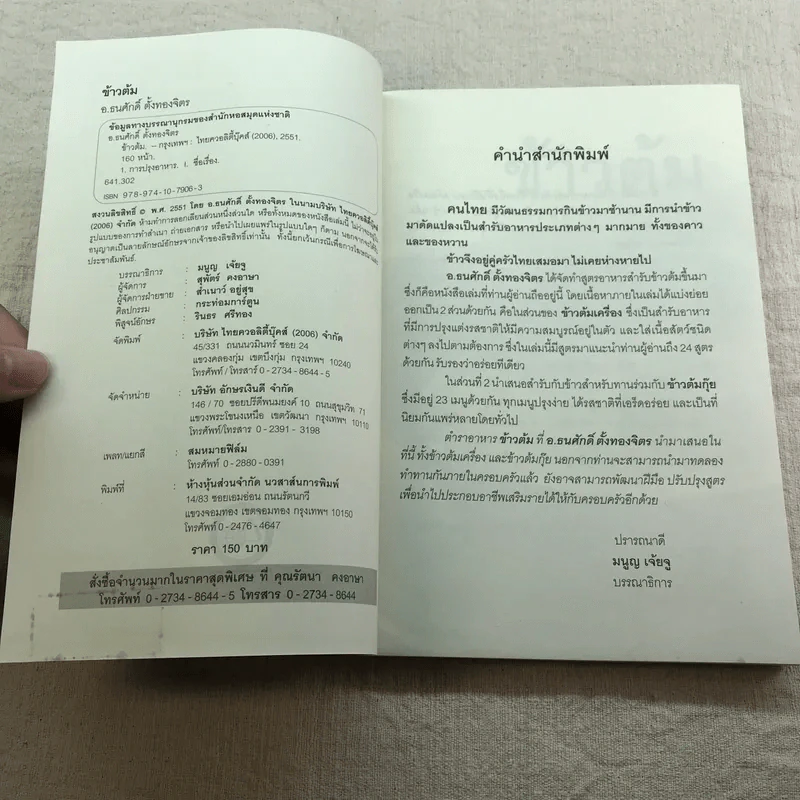 ข้าวต้ม
อ.ธนศักดิ์ ตั้งทองจิตร
ข้อมูลทางบรรณานุกรมของสำนักหอสมุดแห่งชาติ
อ.ธนศักดิ์ ตั้งทองจิตร
ข้าวต้ม. – กรุงเทพฯ : ไทยควอลิตี้บุ๊คส์ (2006), 2551.
160 หน้า.
1. การปรุงอาหาร. I. ชื่อเรื่อง.
641.302
ISBN 978-974-10-7906-3
สงวนลิขสิทธิ์ © พ.ศ. 2551 โดย อ.ธนศักดิ์ ตั้งทองจิตร ในนามบริษัท ไทยควอลิตี้บุ๊คส์
(2006) จำกัด ห้ามทำการลอกเลียนส่วนหนึ่งส่วนใด หรือทั้งหมดของหนังสือเล่มนี้ ไม่ว่า
รูปแบบของการทำสำเนา ถ่ายเอกสาร หรือนำไปเผยแพร่ในรูปแบบใดๆ ก็ตาม นอกจากจะ
อนุญาตเป็นลายลักษณ์อักษรจากเจ้าของลิขสิทธิ์เท่านั้น ทั้งนี้ยกเว้นกรณีเพื่อการ
ประชาสัมพันธ์.
บรรณาธิการ : มนูญ เจ้ยจู
ผู้จัดการ : สุพัตร์ คงอาษา
ผู้จัดการฝ่ายขาย : สำเนาว์ อยู่สุข
ศิลปกรรม : กระท่อมการ์ตูน
พิสูจน์อักษร : รินธร ศรีทอง
จัดพิมพ์ : บริษัท ไทยควอลิตี้บุ๊คส์ (2006) จำกัด
45/331 ถนนนวมินทร์ ซอย 24
แขวงคลองกุ่ม เขตบึงกุ่ม กรุงเทพฯ 10240
โทรศัพท์ /โทรสาร์ 0-2734-8644-5
จัดจำหน่าย : บริษัท อักษรเงินดี จำกัด
146 / 70 ซอยปรีดีพนมยงค์ 10 ถนนสุขุมวิท 71
แขวงพระโขนงเหนือ เขตวัฒนา กรุงเทพฯ 10110
โทรศัพท์/โทรสาร 0-2391-3198
เพลท/แยกสี : สมหมายฟิล์ม
โทรศัพท์ 0-2880-0391
พิมพ์ที่ : ห้างหุ้นส่วนจำกัด นวสาส์นการพิมพ์
14/83 ซอยเอมอ่อน ถนนรัตนกวี
แขวงจอมทอง เขตจอมทอง กรุงเทพฯ 10150
โทรศัพท์ 0-2476-4647
ราคา 150 บาท
สั่งซื้อจำนวนมากในราคาสุดพิเศษ ที่ คุณรัตนา คงอาษา
โทรศัพท์ 0-2734-8644-5 โทรสาร 0-2734-8644
คำนำสำนักพิมพ์
คนไทย มีวัฒนธรรมการกินข้าวมาช้านาน มีการนำข้าว
มาดัดแปลงเป็นสำรับอาหารประเภทต่างๆ มากมาย ทั้งของคาว
และของหวาน
ข้าวจึงอยู่คู่ครัวไทยเสมอมา ไม่เคยห่างหายไป
อ.ธนศักดิ์ ตั้งทองจิตร ได้จัดทำสูตรอาหารสำรับข้าวต้มขึ้นมา
ซึ่งก็คือหนังสือเล่มที่ท่านผู้อ่านถืออยู่นี้ โดยเนื้อหาภายในเล่มได้แบ่งย่อย
ออกเป็น 2 ส่วนด้วยกัน คือในส่วนของ ข้าวต้มเครื่อง ซึ่งเป็นสำรับอาหาร
ที่มีการปรุงแต่งรสชาติให้มีความสมบูรณ์อยู่ในตัว และใส่เนื้อสัตว์ชนิด
ต่างๆลงไปตามต้องการ ซึ่งในเล่มนี้มีสูตรมาแนะนำท่านผู้อ่านถึง 24 สูตร
ด้วยกัน รับรองว่าอร่อยทีเดียว
ในส่วนที่ 2 นำเสนอสำรับกับข้าวสำหรับทานร่วมกับ ข้าวต้มกุ๊ย
ซึ่งมีอยู่ 23 เมนูด้วยกัน ทุกเมนูปรุงง่าย ได้รสชาติที่เอร็ดอร่อย และเป็นที่
นิยมกันแพร่หลายโดยทั่วไป
ตำราอาหาร ข้าวต้ม ที่ อ.ธนศักดิ์ ตั้งทองจิตร นำมาเสนอใน
ที่นี้ ทั้งข้าวต้มเครื่อง และข้าวต้มกุ๊ย นอกจากท่านจะสามารถนำมาทดลอง
ทำทานกันภายในครอบครัวแล้ว ยังอาจสามารถพัฒนาฝีมือ ปรับปรุงสูตร
เพื่อนำไปประกอบอาชีพเสริมรายได้ให้กับครอบครัวอีกด้วย
ปรารถนาดี
มนูญ เจ้ยจู
บรรณาธิการ